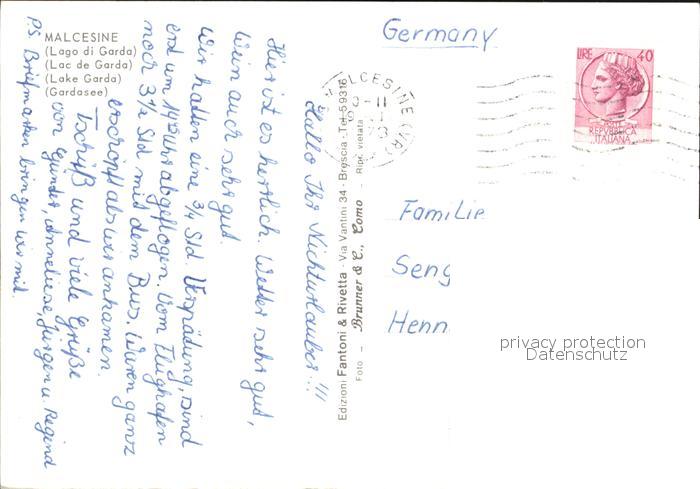 Germany
MALCESINE
(Lago di Garda)
(Lac de Garda)
(Lake Garda)
(Gardasee)
LIRE 40
REPVBBLICA
ITALIANA
MALCESINE (VR)
Hallo Ihr Nichturlauber!!!
Hier ist es herrlich. Wetter sehr gut,
Wein auch sehr gut.
Wir hatten eine 3/4 Std. Verspädung, sind
erst um 14 Uhr abgeflogen. Vom Flughafen
noch 3 1/2 Std mit dem Bus. Waren ganz
erschöpft als wir ankamen.
Tschüß und viele Grüße
von Günter, Anneliese, Jürgen u. Regina
P.S. Briefmarken bringen wir mit.
Edizioni Fantoni & Rivetta - Via Vantini 34 - Brescia - Tel. 59316
Foto - Brunner & C., Como - Ripr. vietata
Familie
Seng
Henn
privacy protection
Datenschutz